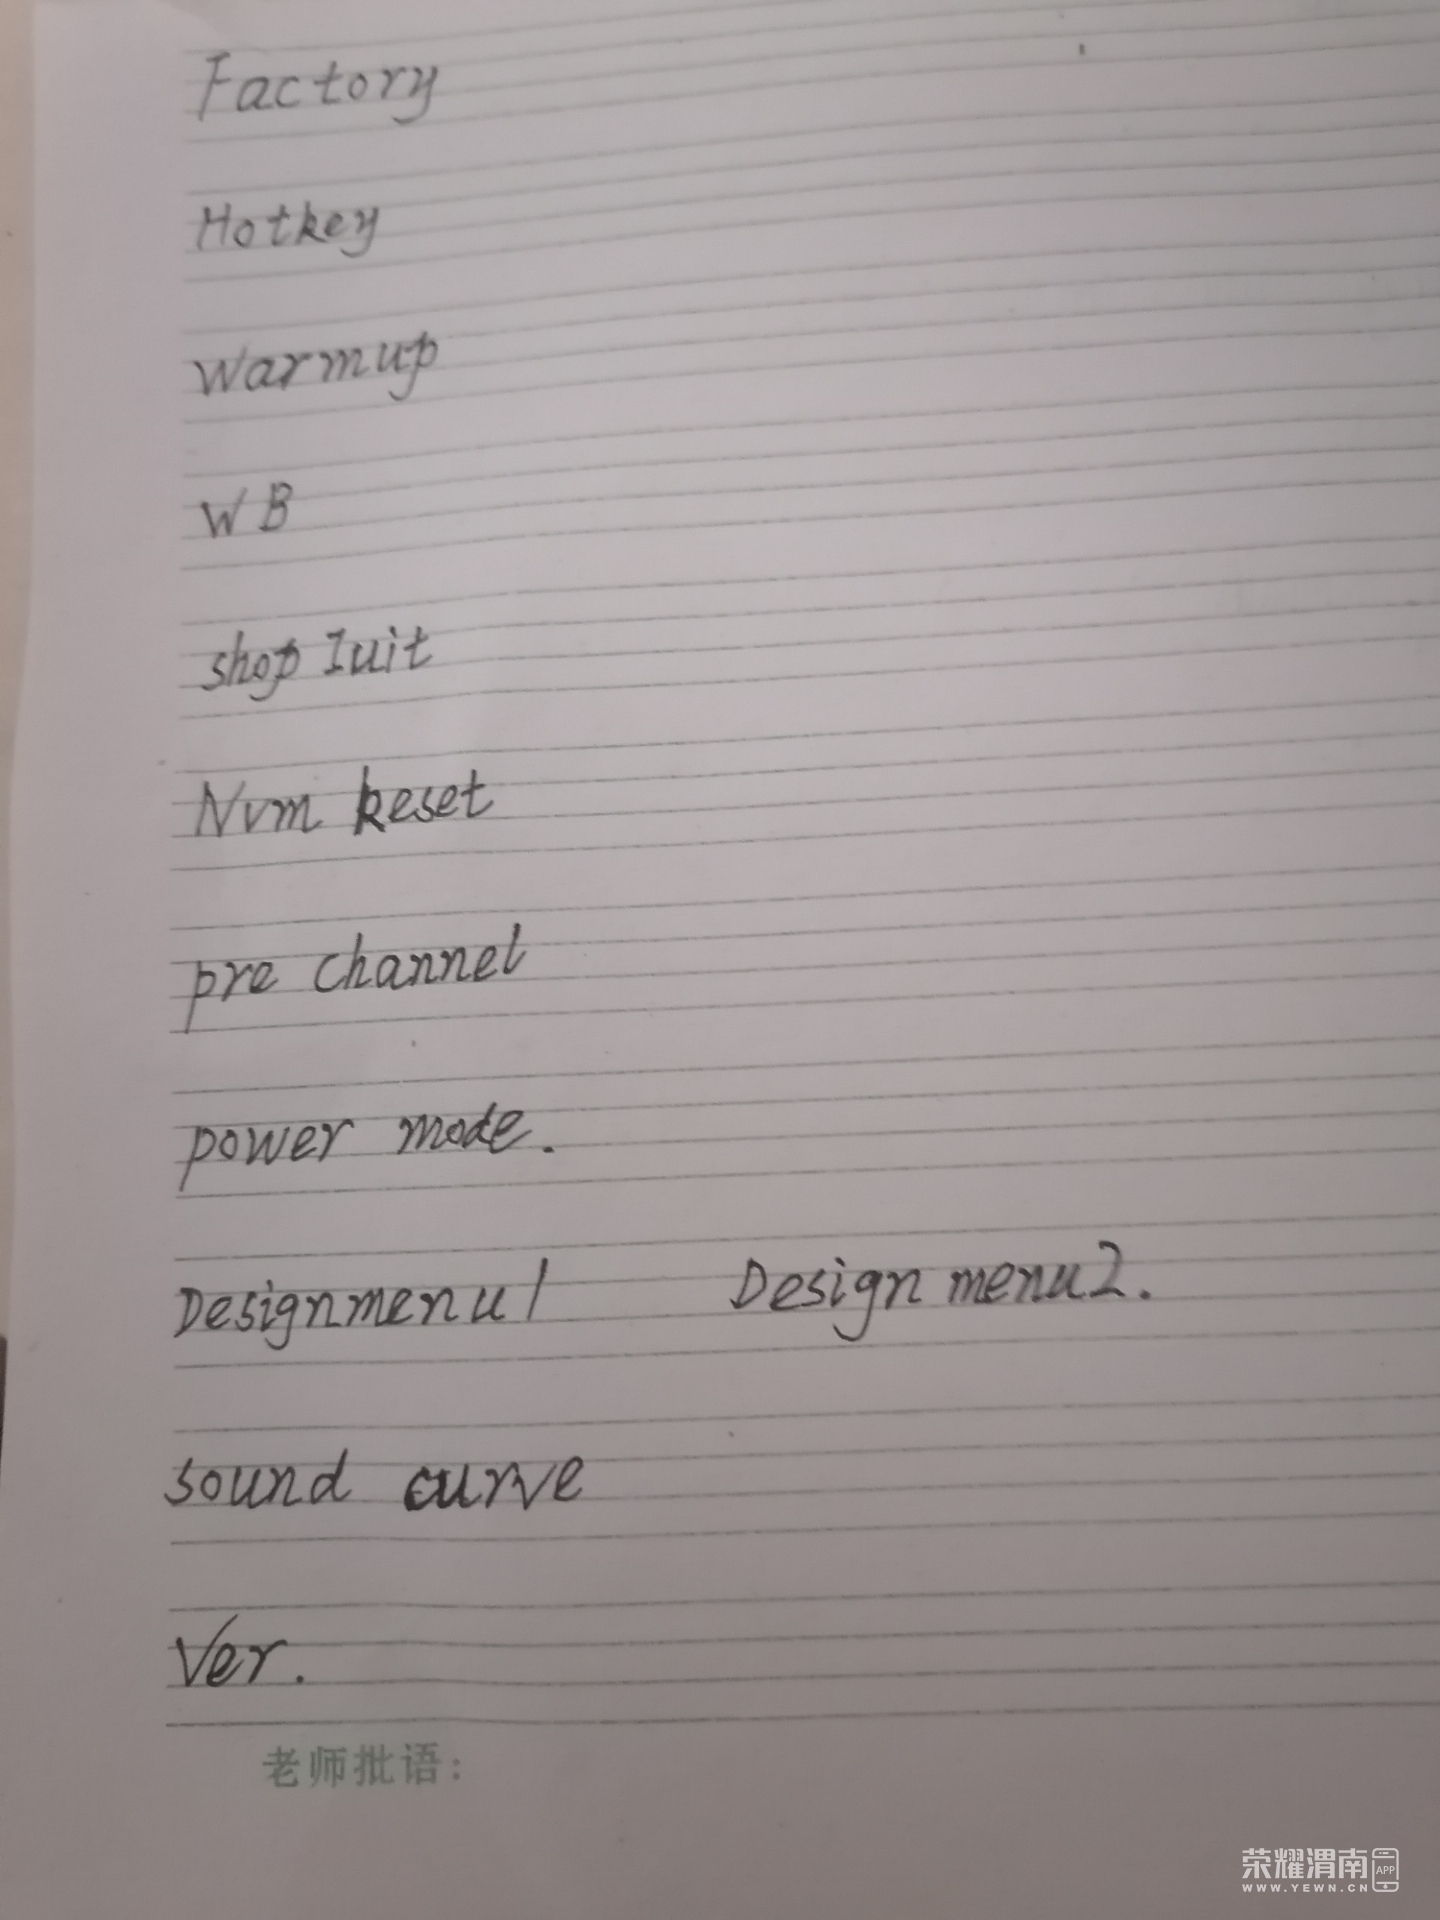 Factory
Hotkey
Warmup
WB
shop Iuit
Nvm Reset
pre channel
power mode.
Designmenu1 Design menu2.
sound curve
Ver.
老师批语:
荣耀渭南APP
WWW.YEWN.CN